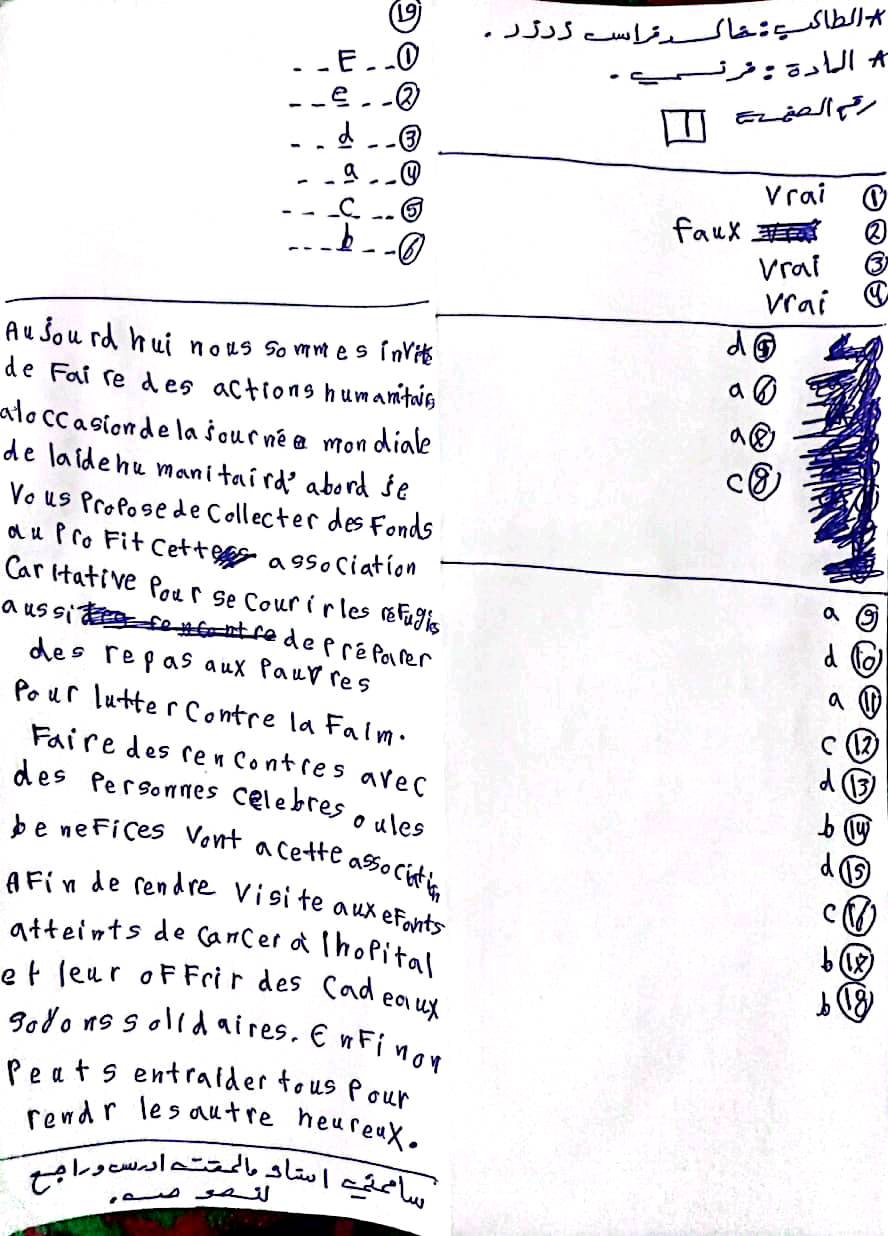 * الطالب: خالد فراس
* المادة: فرنسي.
رقم الصفحة 1
① Vrai
② faux
③ Vrai
④ Vrai
⑤ d
⑥ a
⑦ a
⑧ c
⑨ a
⑩ d
⑪ a
⑫ c
⑬ d
⑭ b
⑮ d
⑯ c
⑰ b
⑱ b
⑲
① -- F --
② -- e --
③ -- d --
④ -- a --
⑤ -- C ---
⑥ -- b ---
Aujourd hui nous sommes invités
de Faire des actions humanitairs
aloccasion de la journée mondiale
de laide humanitaird' abord je
Vous Propose de Collecter des Fonds
au ProFit Cette association
Caritative Pour se Courir les réfugis
aussi de préparer
des repas aux Pauvres
Pour lutter Contre la Falm.
Faire des rencontres avec
des Personnes Celebres oules
beneFices Vont acette association
AFin de rendre Visite aux efants
atteints de Cancer à lhopital
et leur oFFrir des Cadeaux
soyons solidaires. EnFinon
Peut s entraider tous Pour
rendr les autre heureux.